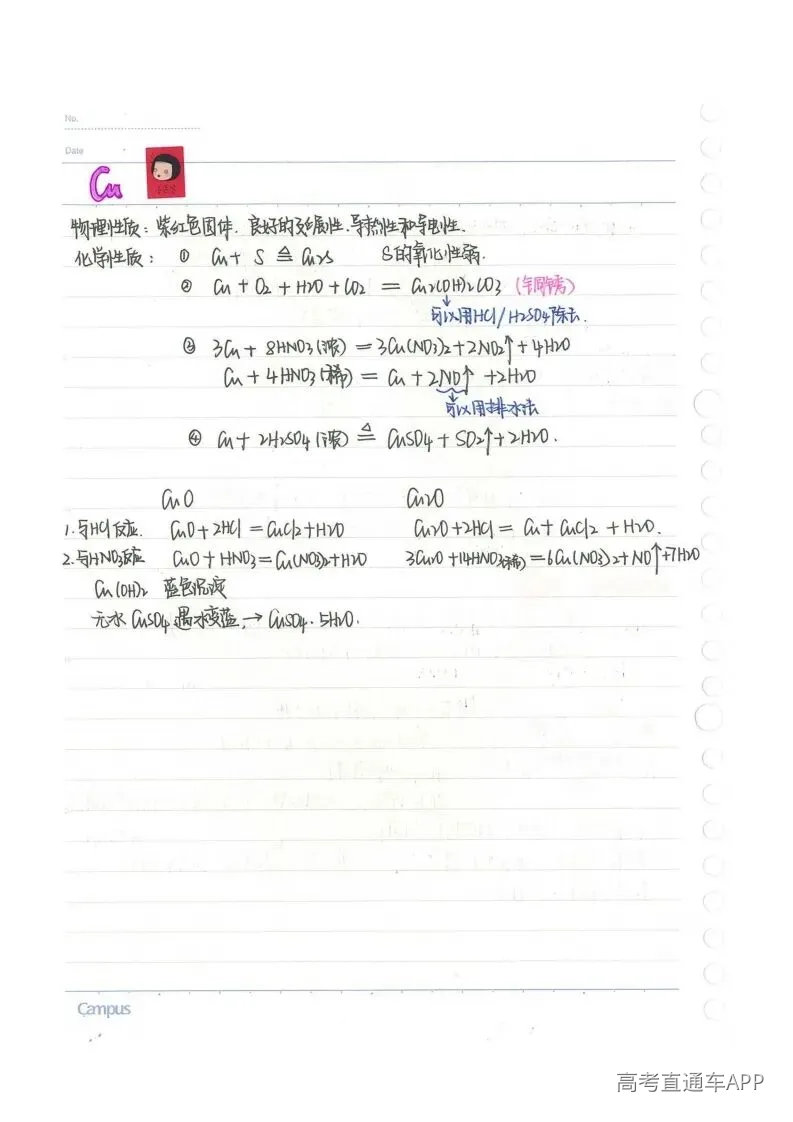 No.
Date
Cu
物理性质：紫红色固体．良好的延展性．导热性和导电性．
化学性质：① Cu + S ≜ Cu2S S的氧化性弱．
② Cu + O2 + H2O + CO2 = Cu2(OH)2CO3 (铜锈)
可以用HCl/H2SO4除去．
③ 3Cu + 8HNO3(浓) = 3Cu(NO3)2 + 2NO2↑ + 4H2O
Cu + 4HNO3(稀) = Cu + 2NO↑ + 2H2O
可以用排水法
④ Cu + 2H2SO4(浓) ≜ CuSO4 + SO2↑ + 2H2O．
CuO Cu2O
1.与HCl反应． CuO + 2HCl = CuCl2 + H2O Cu2O + 2HCl = Cu + CuCl2 + H2O．
2.与HNO3反应 CuO + HNO3 = Cu(NO3)2 + H2O 3Cu2O + 14HNO3(稀) = 6Cu(NO3)2 + NO↑ + 7H2O
Cu(OH)2 蓝色沉淀
无水CuSO4遇水变蓝，→ CuSO4·5H2O．
Campus
高考直通车APP